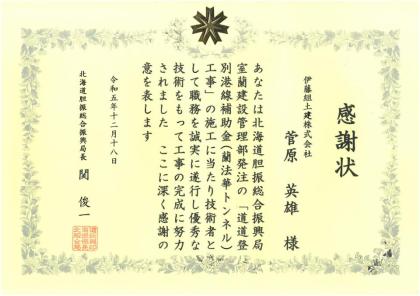 感謝状
伊藤組土建株式会社
菅原 英雄 様
あなたは北海道胆振総合振興局
室蘭建設管理部発注の「道道登
別港線補助金(蘭法華トンネル)
工事」の施工に当たり技術者と
して職務を誠実に遂行し優秀な
技術をもつて工事の完成に努力
されました ここに深く感謝の
意を表します
令和五年十二月十八日
北海道胆振総合振興局長 関 俊一